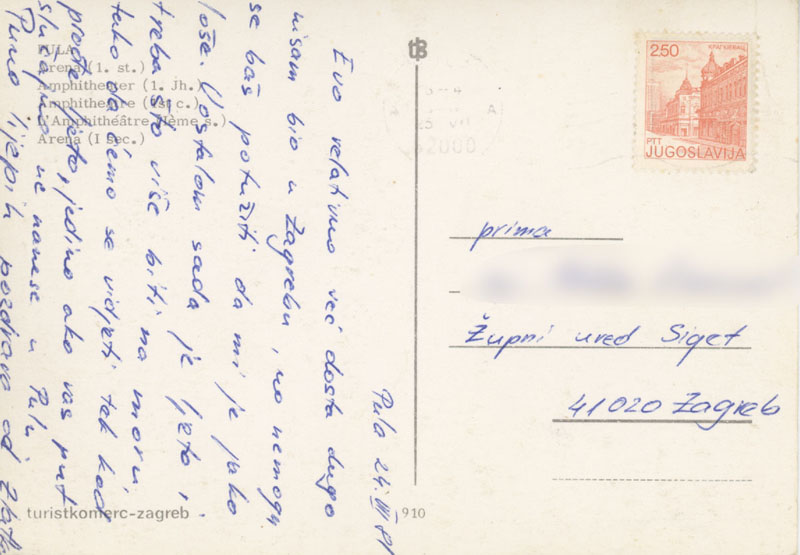 PULA
Arena (1. st.)
Amphitheater (1. Jh.)
Amphitheatre (1st c.)
L'Amphithéâtre (Ième s.)
Arena (I sec.)
Pula 24. VII 81
Evo relativno već dosta dugo
nisam bio u Zagrebu, no nemogu
se baš potužiti da mi je jako
loše. Uostalom sada je ljeto i
treba što više biti na moru
tako da ćemo se vidjeti tek kad
prođe ljeto, jedino ako vas put
slučajno ne nanese u Pulu.
Puno lijepih pozdrava od Zlatk
turistkomerc-zagreb
910
2,50
PTT
JUGOSLAVIJA
25 VII
52000
prima
Župni ured Siget
41020 Zagreb